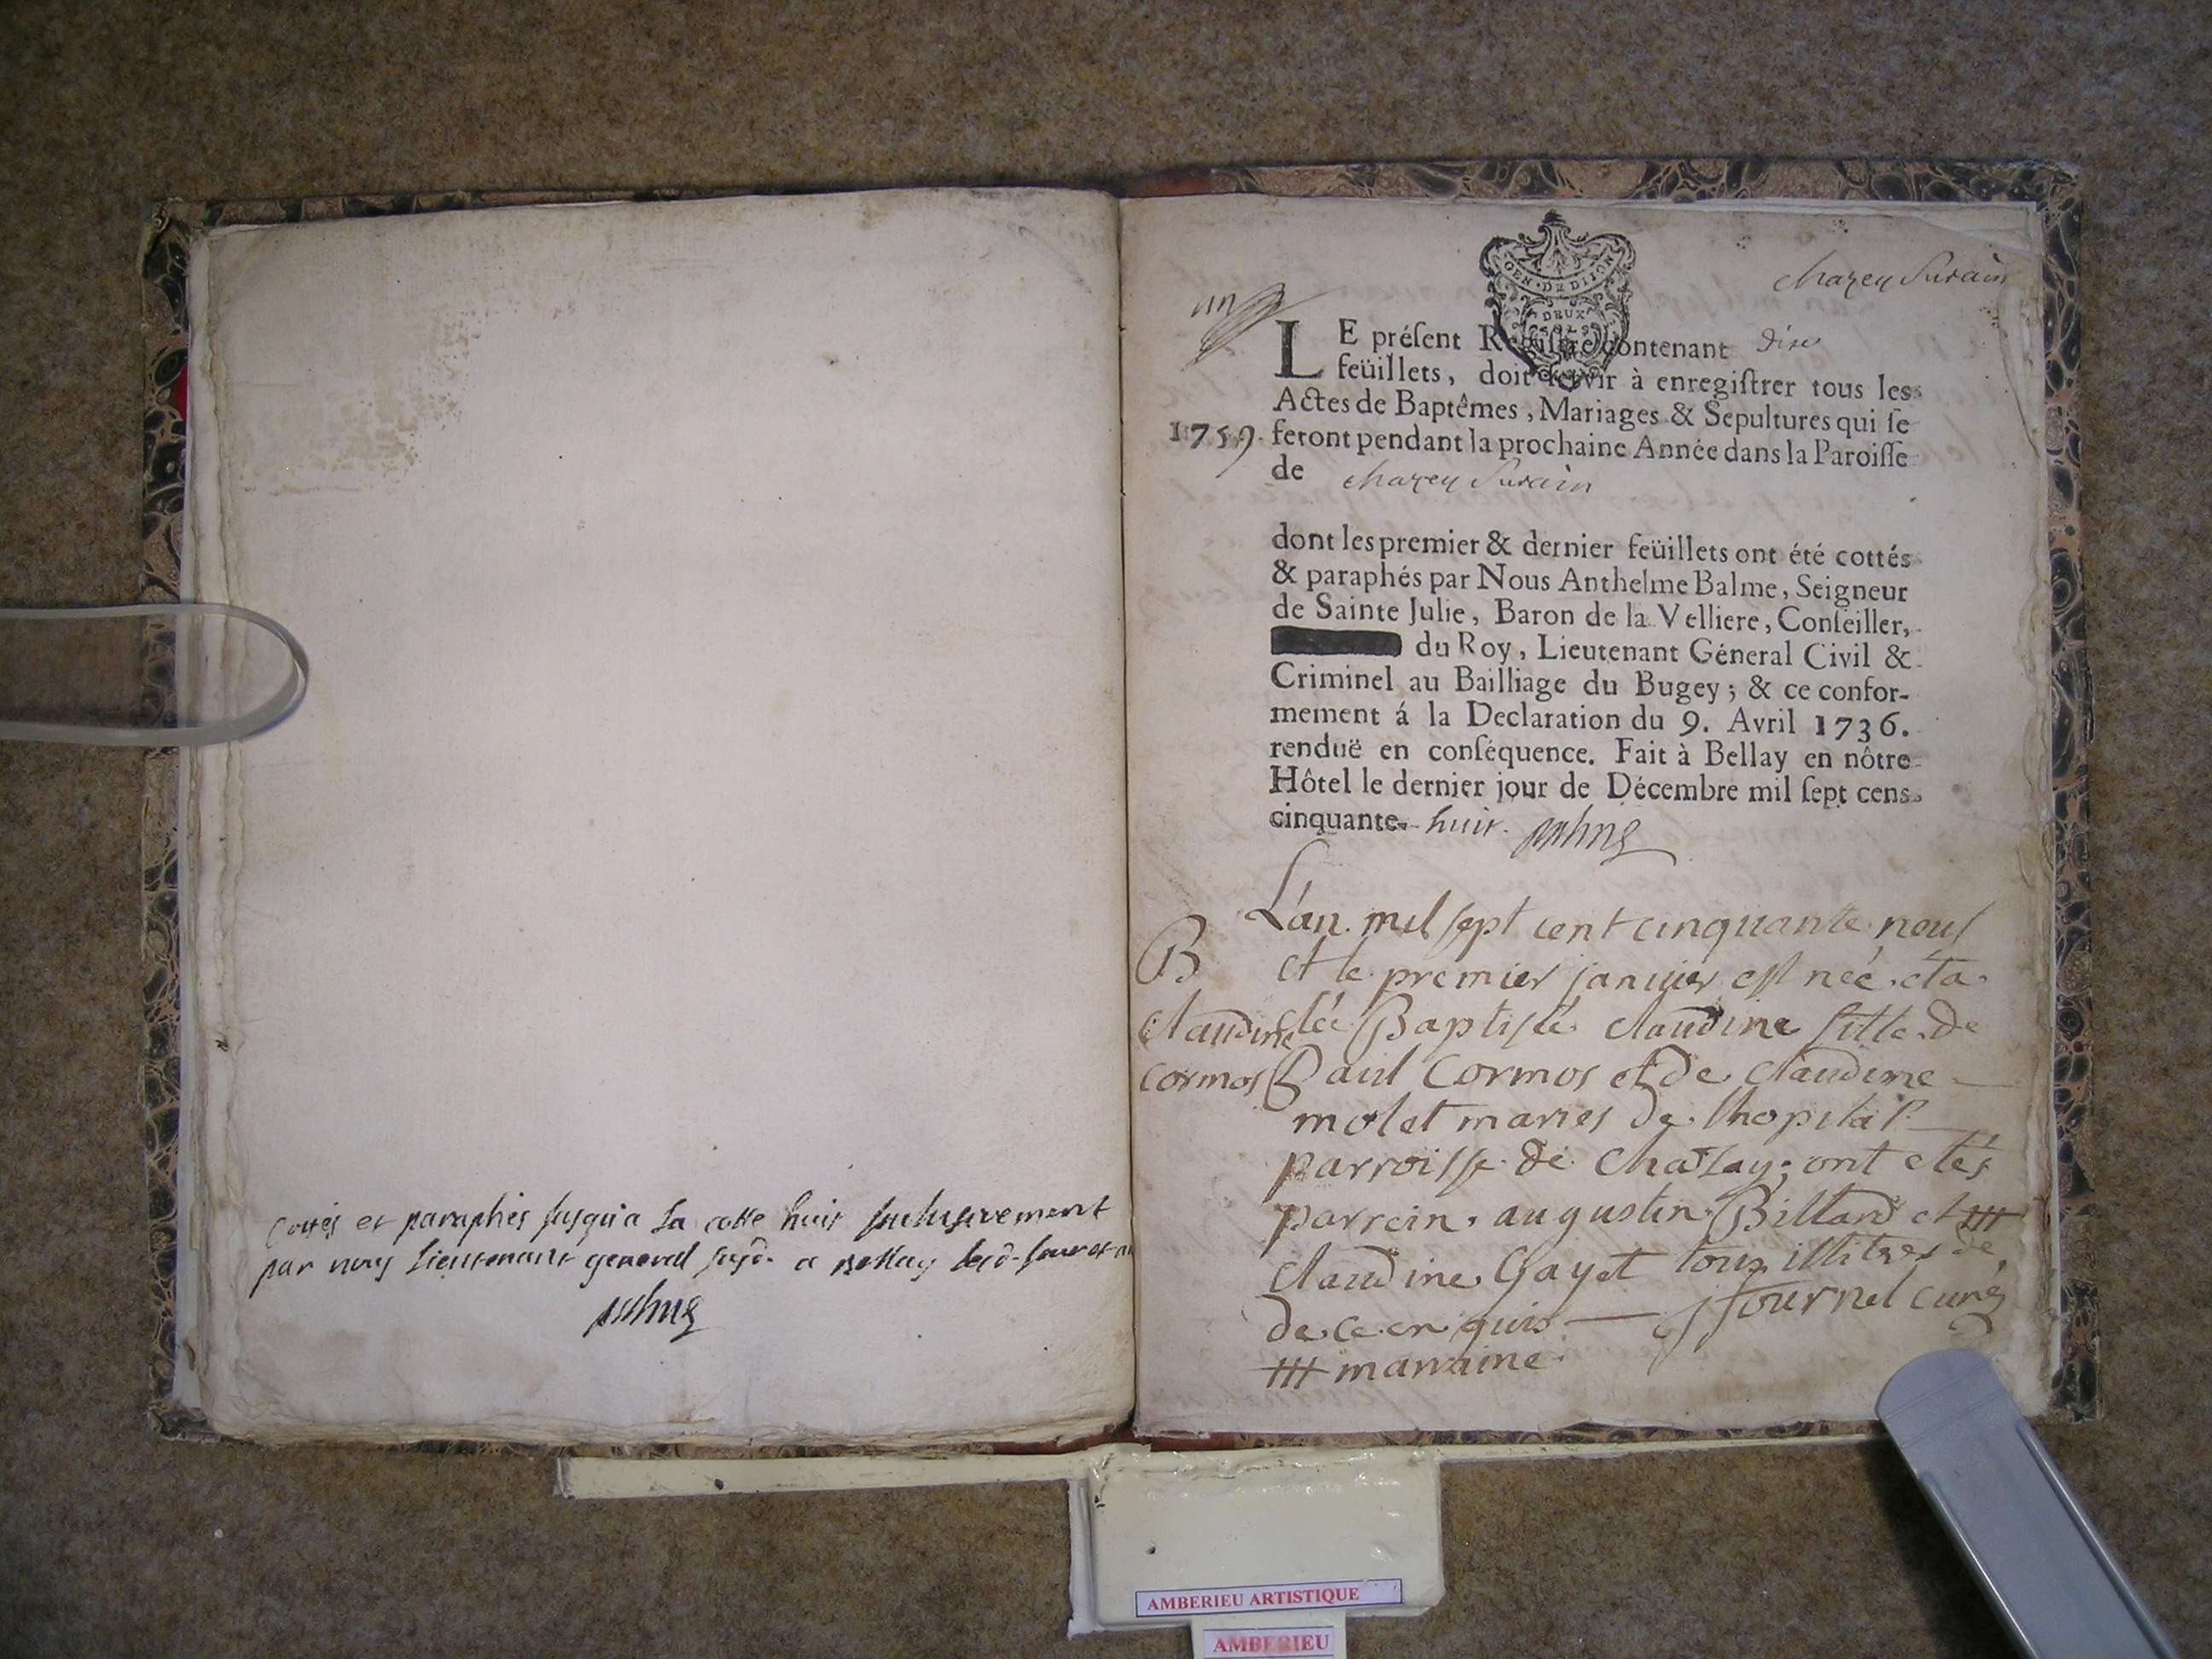 Cottés et paraphés jusqu'a la cotte huit inclusivement
par nous Lieutenant general susd. a Bellay lesd. jour et an
Balme
chazey Surain
GEN · DE DIJON
DEUX
SOLS
un
LE préſent Regiſtre contenant dix
feüillets, doit ſervir à enregiſtrer tous les
Actes de Baptêmes, Mariages & Sepultures qui ſe
1759. feront pendant la prochaine Année dans la Paroiſſe
de chazey Surain
dont les premier & dernier feüillets ont été cottés
& paraphés par Nous Anthelme Balme, Seigneur
de Sainte Julie, Baron de la Velliere, Conſeiller,
du Roy, Lieutenant Géneral Civil &
Criminel au Bailliage du Bugey; & ce confor-
mement á la Declaration du 9. Avril 1736.
renduë en conſéquence. Fait à Bellay en nôtre
Hôtel le dernier jour de Décembre mil ſept cens
cinquante-huit. Balme
L'an mil sept cent cinquante neuf
B et le premier janvier est née et a
Claudine été Baptisée claudine fille de
Cormos Paul Cormos et de claudine
molet maries de lhopital
parroisse de Chasay; ont etés
parrein augustin Billard et ###
Claudine Gayet tous illitres de
de ce enquis — Fournel curé
### marraine
AMBERIEU ARTISTIQUE
AMBERIEU